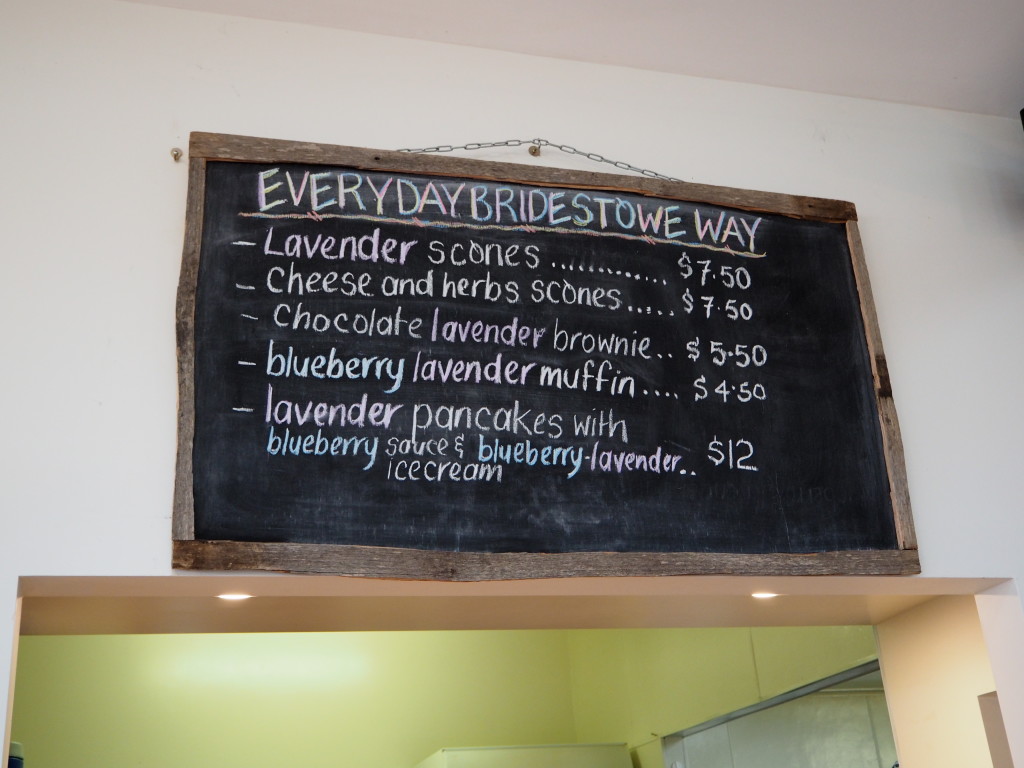 EVERYDAY BRIDESTOWE WAY
- Lavender scones ............ $7.50
- Cheese and herbs scones ..... $7.50
- Chocolate lavender brownie.. $5.50
- blueberry lavender muffin .... $4.50
- lavender pancakes with
blueberry sauce & blueberry-lavender.. $12
icecream